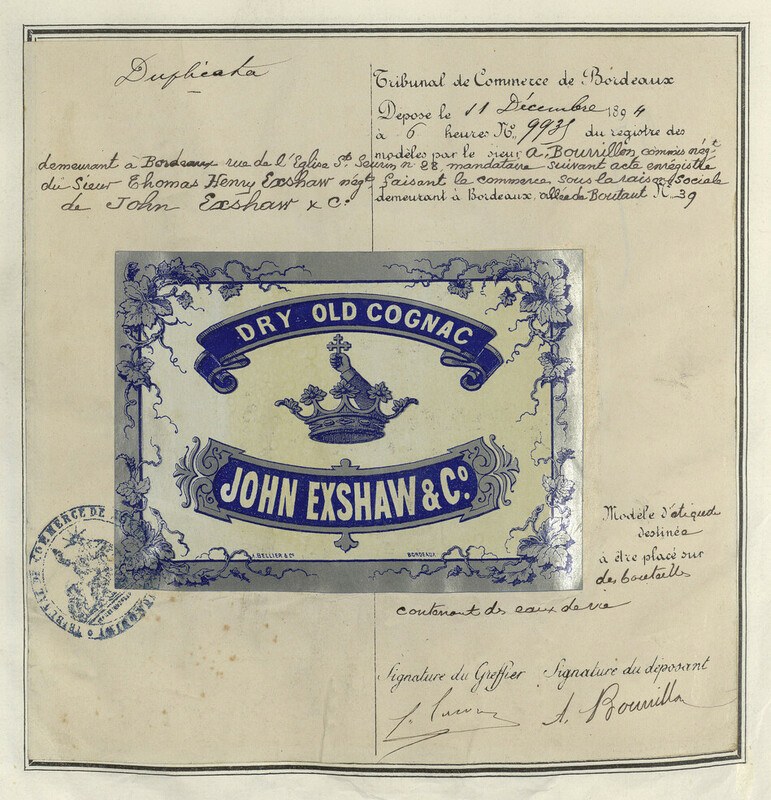 Duplicata
Tribunal de Commerce de Bordeaux
Déposé le 11 Décembre 1894
à 6 heures No. 9935 du registre des
modèles par le sieur A, Bourrillon, commis négt
demeurant à Bordeaux rue de l'Eglise St. Seurin n° 28, mandataire suivant acte enrégistré
du Sieur Thomas Henry Exshaw négt, faisant le commerce sous la raison sociale
de John Exshaw & Co demeurant à Bordeaux, allée de Boutaut No. 39
DRY OLD COGNAC
JOHN EXSHAW & Co.
BELLIER & Co BORDEAUX
TRIBUNAL DE COMMERCE DE
Modèle d'étiquette
destinée
à être placé sur
des bouteilles
contenant des eaux de vie
Signature du Greffier Signature du déposant
A. Bourrillon